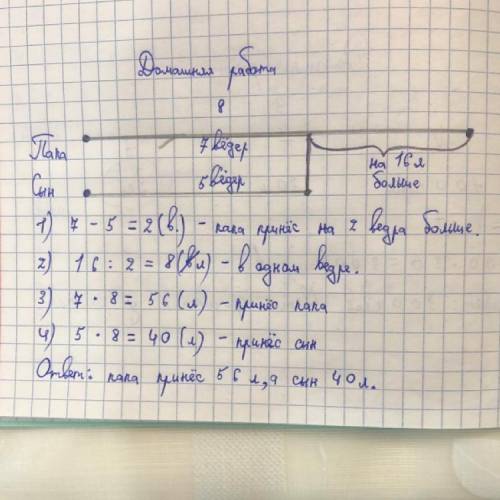 Домашняя работа
8
Папа 7 вёдер
на 16 л
больше
Сын 5 вёдер
1) 7 - 5 = 2 (в.) - папа принёс на 2 ведра больше.
2) 16 : 2 = 8 (л) - в одном ведре.
3) 7 · 8 = 56 (л) - принёс папа
4) 5 · 8 = 40 (л) - принёс сын
Ответ: папа принёс 56 л, а сын 40 л.